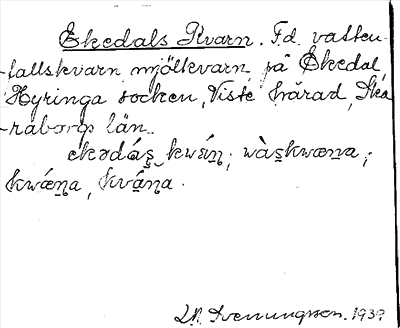 Ekedals Kvarn. F.d. vatten-
fallskvarn, mjölkvarn, på Ekedal,
Hyringa socken, Viste härad, Ska-
raborgs län.
ekədás̱ kwǽṉ; wàs̱kwæṉa,
kwǽṉa, kváṉa.
L.N. Svenungsson. 1937